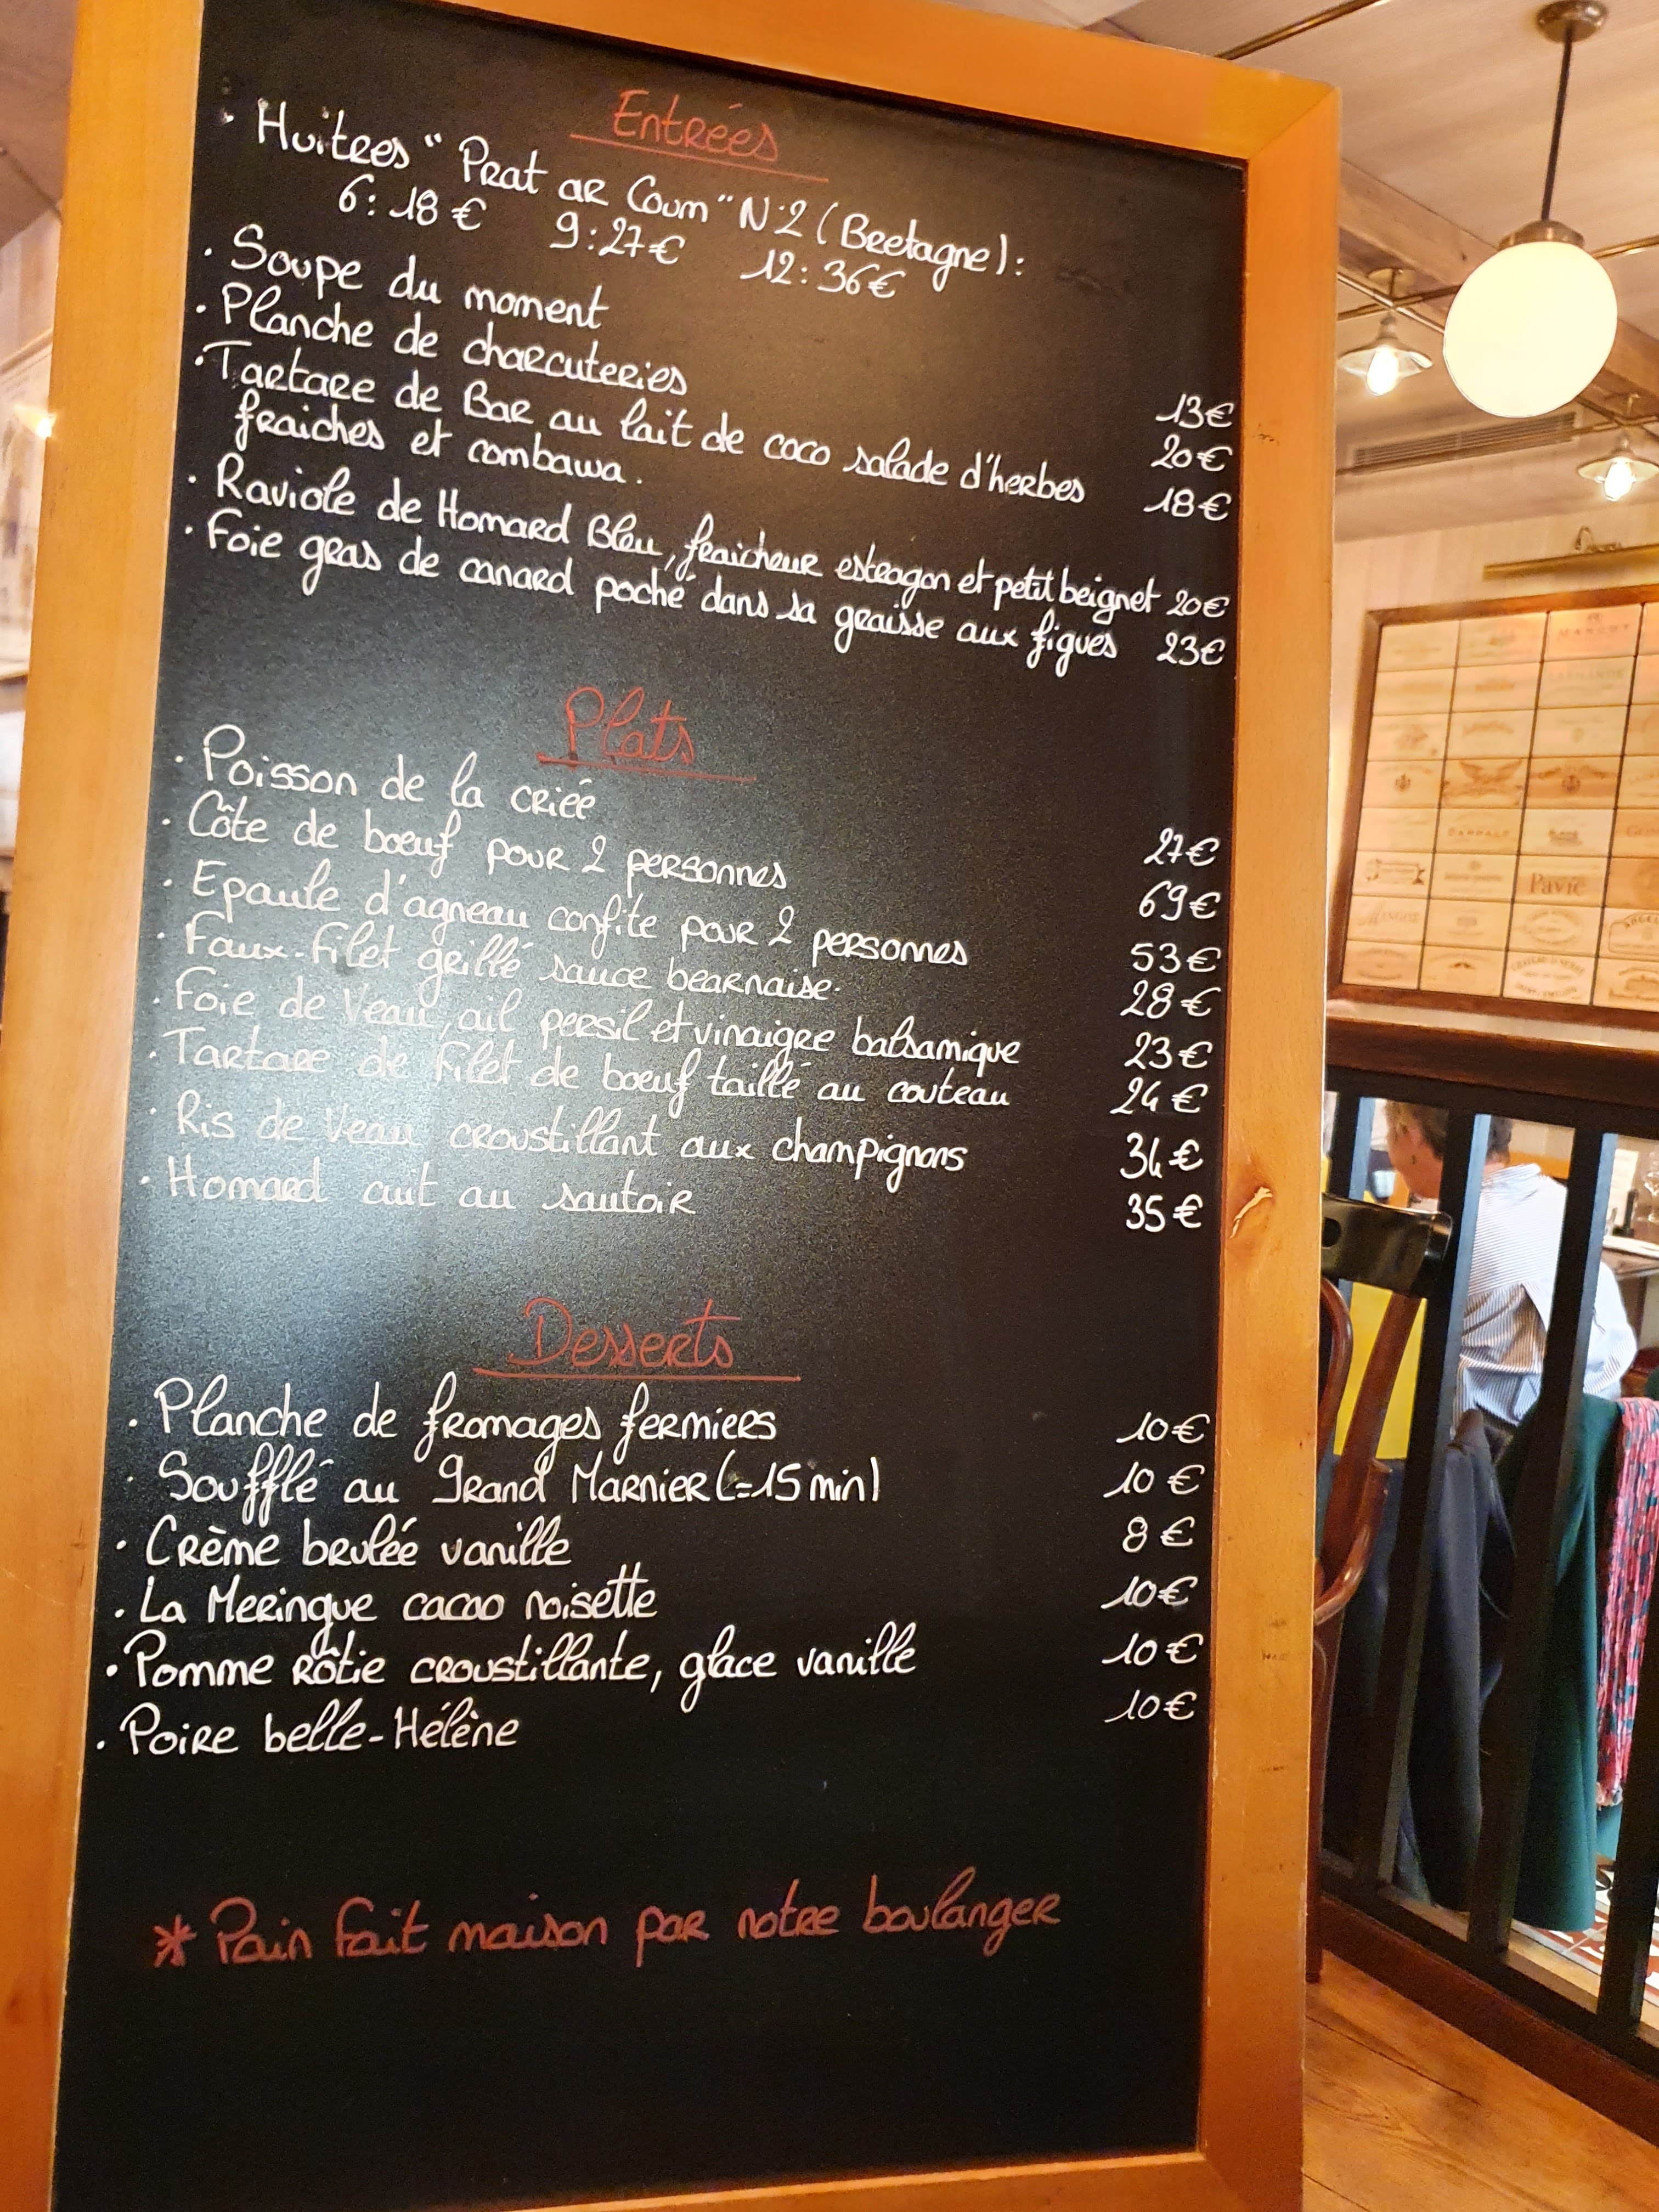 Entrées
· Huitres "Prat ar Coum" N°2 (Bretagne):
6: 18€ 9: 27€ 12: 36€
· Soupe du moment 13€
· Planche de charcuteries 20€
· Tartare de Bar au lait de coco salade d'herbes 18€
fraiches et combawa.
· Raviole de Homard Bleu, fraicheur estragon et petit beignet 20€
· Foie gras de canard poché dans sa graisse aux figues 23€
Plats
· Poisson de la criée 27€
· Côte de bœuf pour 2 personnes 69€
· Epaule d'agneau confite pour 2 personnes 53€
· Faux-Filet grillé sauce bearnaise. 28€
· Foie de Veau, ail persil et vinaigre balsamique 23€
· Tartare de Filet de boeuf taillé au couteau 24€
· Ris de Veau croustillant aux champignons 34€
· Homard cuit au sautoir 35€
Desserts
· Planche de fromages fermiers 10€
· Soufflé au Grand Marnier (=15 min) 10€
· Crème brulée vanille 8€
· La Meringue cacao noisette 10€
· Pomme rôtie croustillante, glace vanille 10€
· Poire belle-Hélène 10€
* Pain fait maison par notre boulanger
Pavie